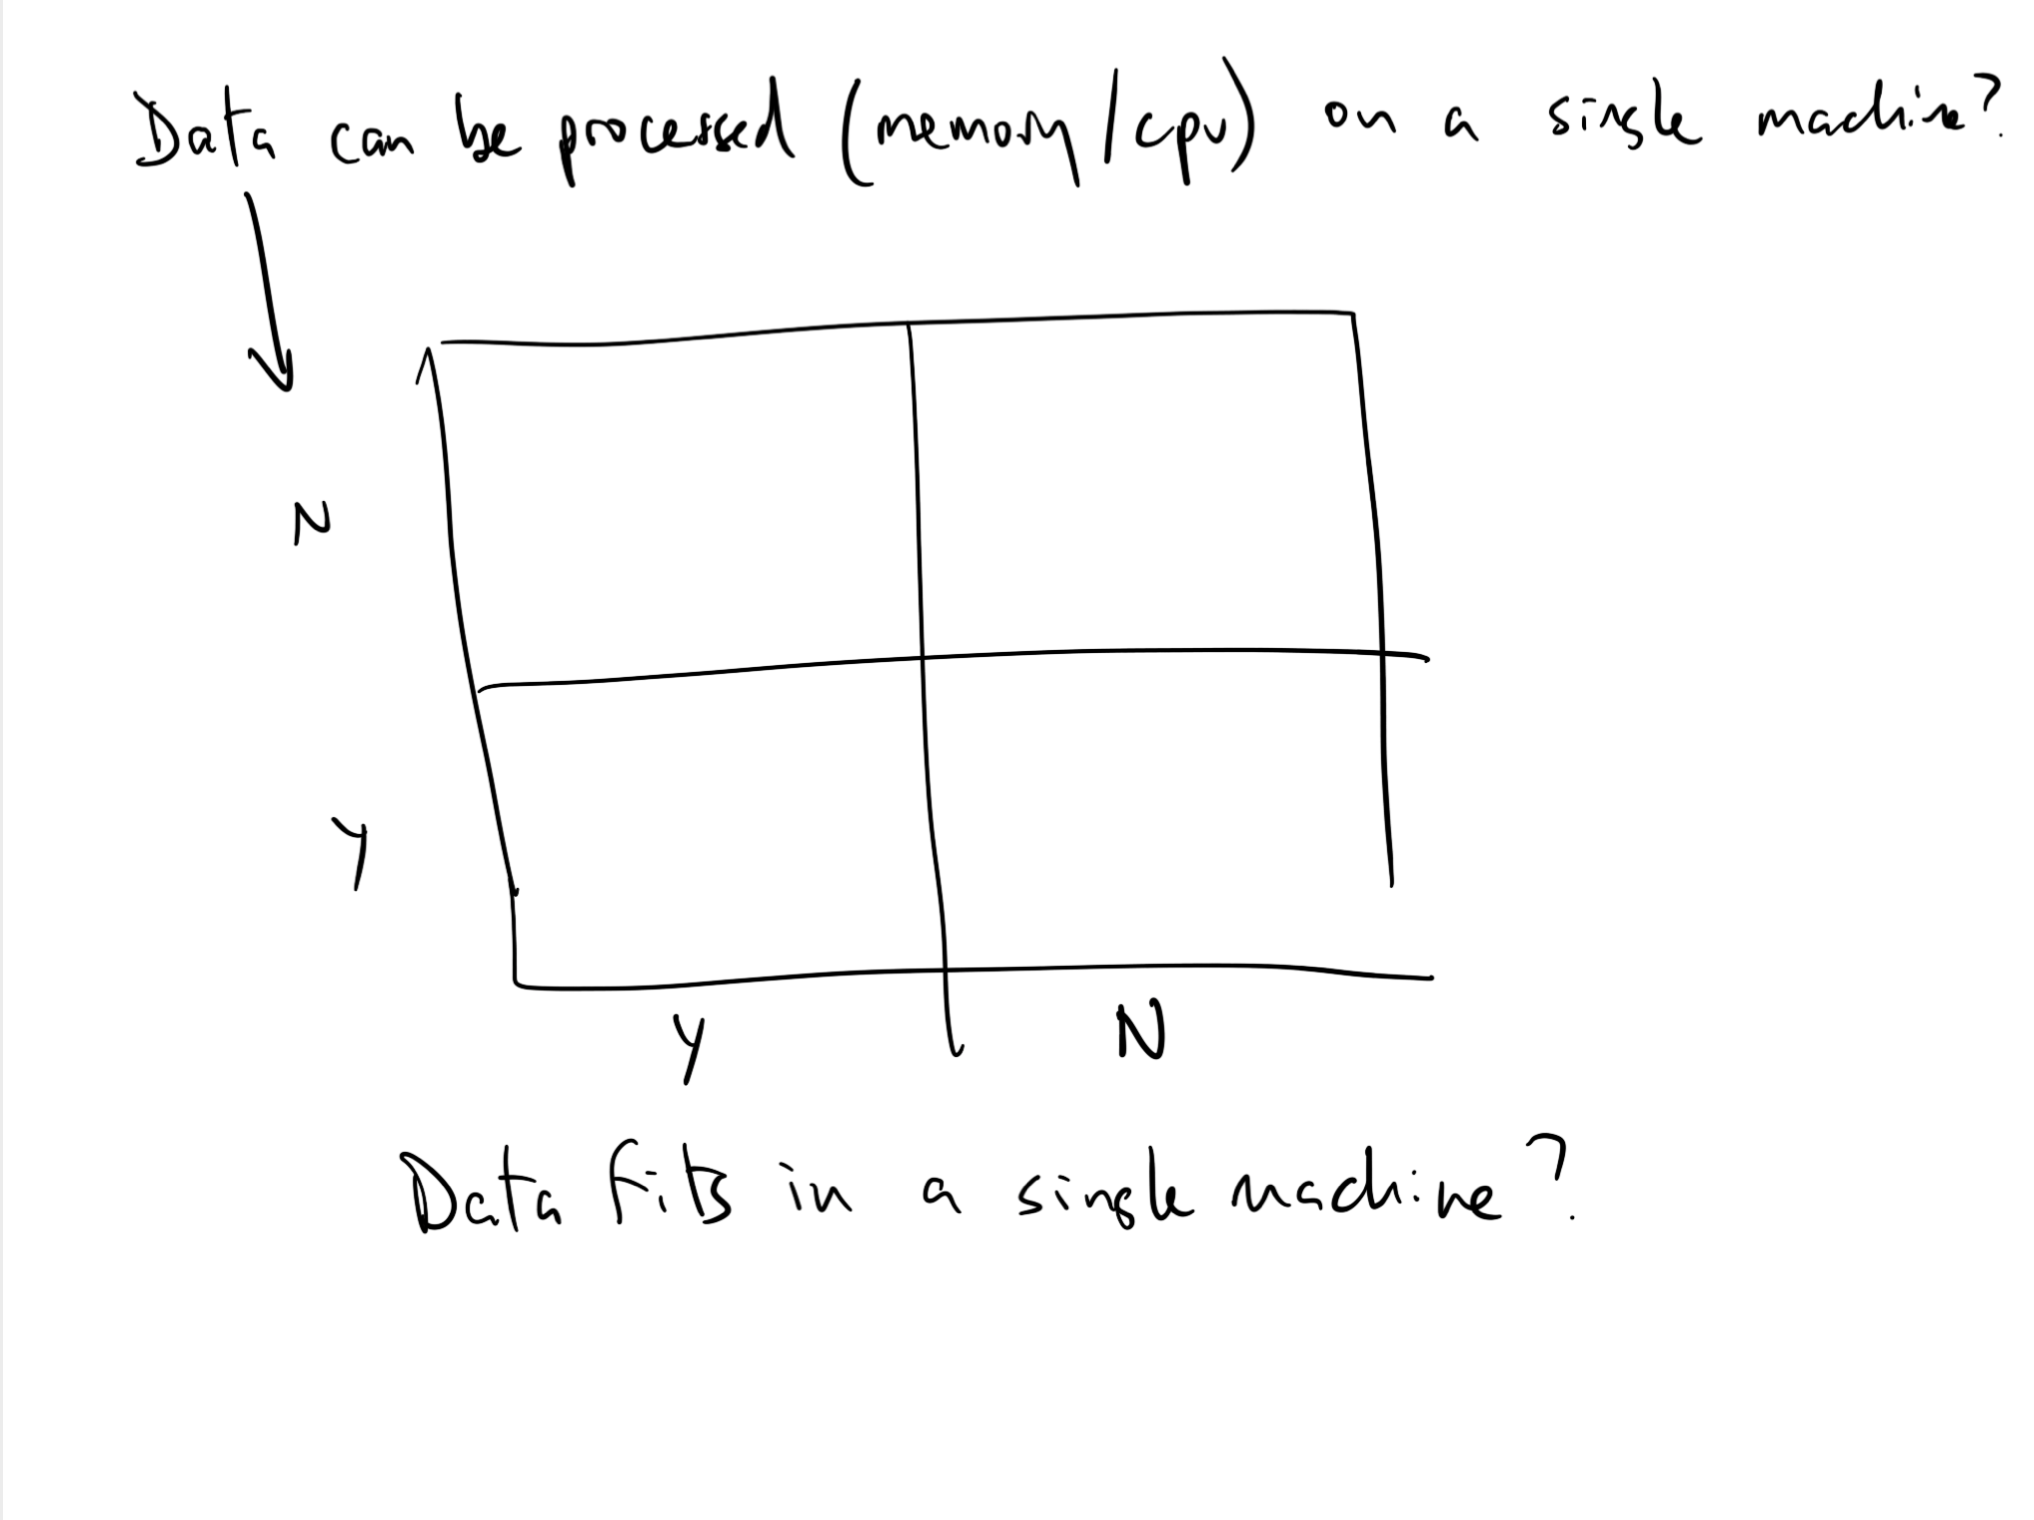 Data can be processed (memory/cpu) on a single machine?
N
Y
Y N
Data fits in a single machine?